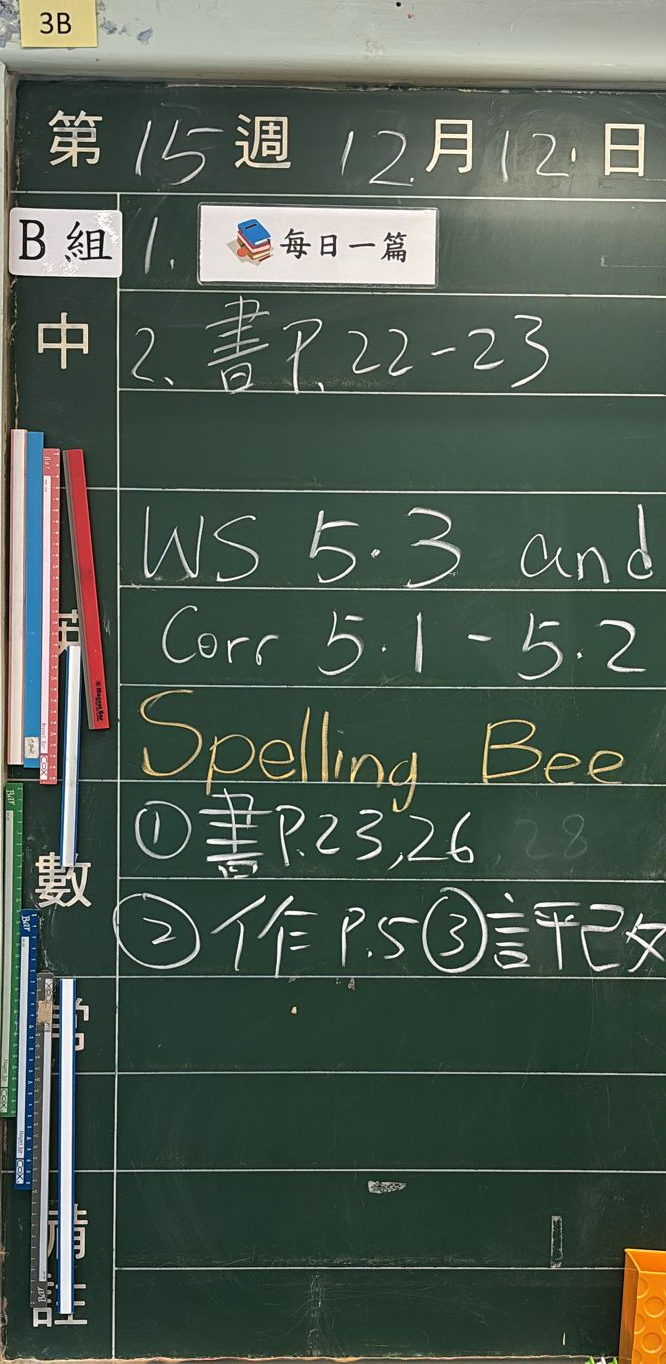 3B
第 15 週 12 月 12 日
B 組 1. 每日一篇
中 2、書P. 22-23
WS 5.3 and
Corr 5.1 - 5.2
Spelling Bee
①書P.23,26
數
②作P.5③評改
常
備
註